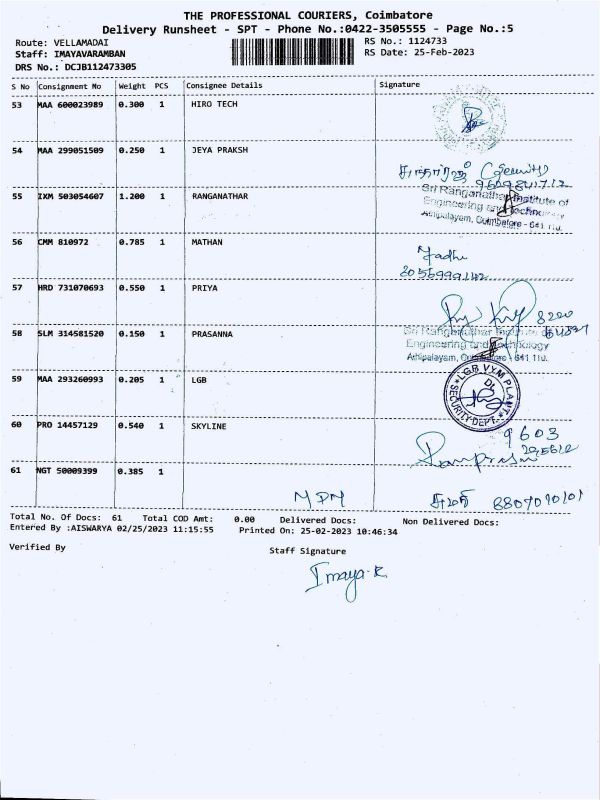 THE PROFESSIONAL COURIERS, Coimbatore
Delivery Runsheet - SPT - Phone No.:0422-3505555 - Page No.:5
Route: VELLAMADAI RS No.: 1124733
Staff: IMAYAVARAMBAN RS Date: 25-Feb-2023
DRS No.: DCJB112473305
S No Consignment No Weight PCS Consignee Details Signature
53 MAA 600023989 0.300 1 HIRO TECH
54 MAA 299051509 0.250 1 JEYA PRAKSH
(Security)
9609841712
55 IXM 503054607 1.200 1 RANGANATHAR
Sri Ranganathar Institute of
Engineering and Technology
Athipalayam, Coimbatore - 641 110.
56 CMM 810972 0.785 1 MATHAN
57 HRD 731070693 0.550 1 PRIYA
8200
58 SLM 314581520 0.150 1 PRASANNA
Sri Ranganathar Institute of
Engineering and Technology
Athipalayam, Coimbatore - 641 110.
59 MAA 293260993 0.205 1 LGB
LGB VYM PLANT
SECURITY DEPT.
60 PRO 14457129 0.540 1 SKYLINE
9603
61 NGT 50009399 0.385 1
MPM சுமதி 8807070101
Total No. Of Docs: 61 Total COD Amt: 0.00 Delivered Docs: Non Delivered Docs:
Entered By :AISWARYA 02/25/2023 11:15:55 Printed On: 25-02-2023 10:46:34
Verified By Staff Signature
Imaya-R